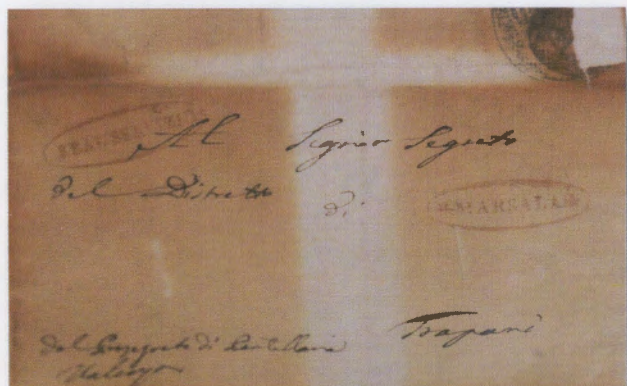 Al Signor Segreto
del Distretto di
MARSALA
Trapani
dal Prosegreto di Pantellaria